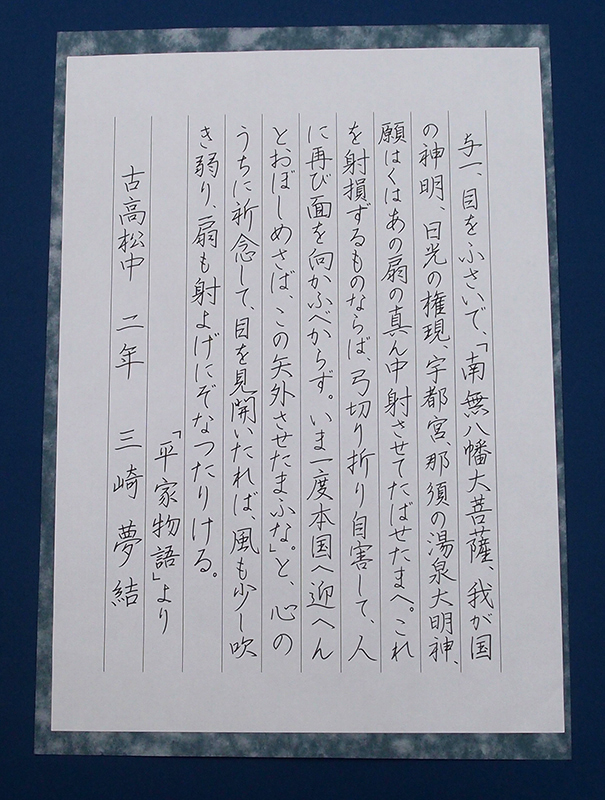 与一、目をふさいで、「南無八幡大菩薩、我が国
の神明、日光の権現、宇都宮、那須の湯泉大明神、
願はくはあの扇の真ん中射させてたばせたまへ。これ
を射損ずるものならば、弓切り折り自害して、人
に再び面を向かふべからず。いま一度本国へ迎へん
とおぼしめさば、この矢外させたまふな。」と、心の
うちに祈念して、目を見開いたれば、風も少し吹
き弱り、扇も射よげにぞなつたりける。
「平家物語」より
古高松中 二年 三崎夢結